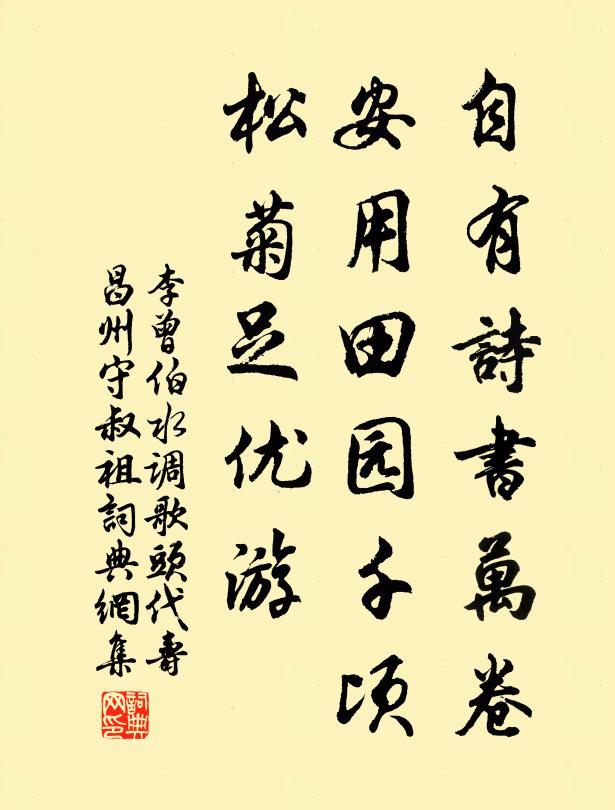 自有詩書萬卷
安用田园千顷
松菊足优游
李曾伯水调歌頭代壽
昌州守叔祖詞典網集
詞典网印